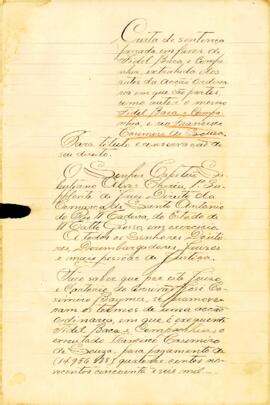 Carta de sentença
passada em favor de
Fidel Baca e Compa-
nhia, extrahida dos
autos da acção ordina-
ria em que são partes
como autor o mesmo
Fidel Baca e Compa-
nhia, e réo Francisco
Casimiro de Souza.
Para titulo e conservação de
seu direito.
O Senhor Capitão
Alves 1º Sup-
plente do Juiz de Direito da
Comarca de Santo Antonio
do Rio Madeira, do Estado de
Matto Grosso, em exercicio
A todos os Senhores Douto-
res Dezembargadores, Juizes
e mais pessôas da Justiça.
Faço saber que por este Juizo
e Cartorio do Escrivão José Ca-
semiro Bayma, se
os termos de uma acção
ordinaria, em que é exequente
Fidel Baca e Companhia e
executado Francisco Casemiro
de Souza, para pagamento de
quatorze contos no-
vecentos cincoenta e seis mil